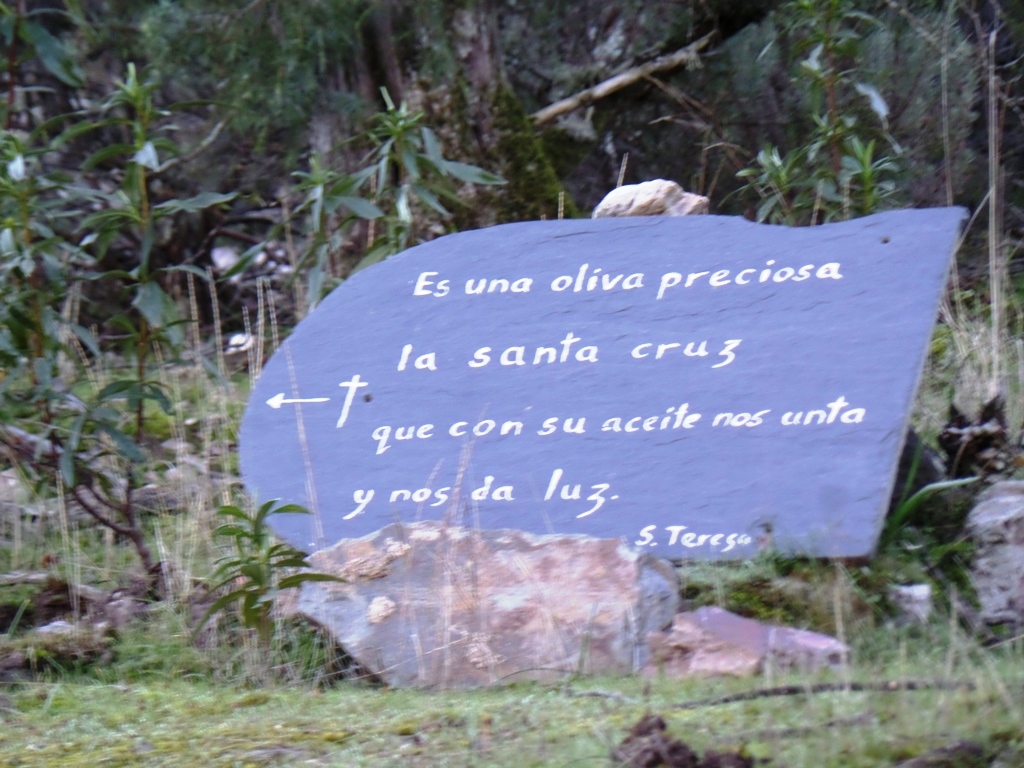 Es una oliva preciosa
la santa cruz
que con su aceite nos unta
y nos da luz.
S. Teresa